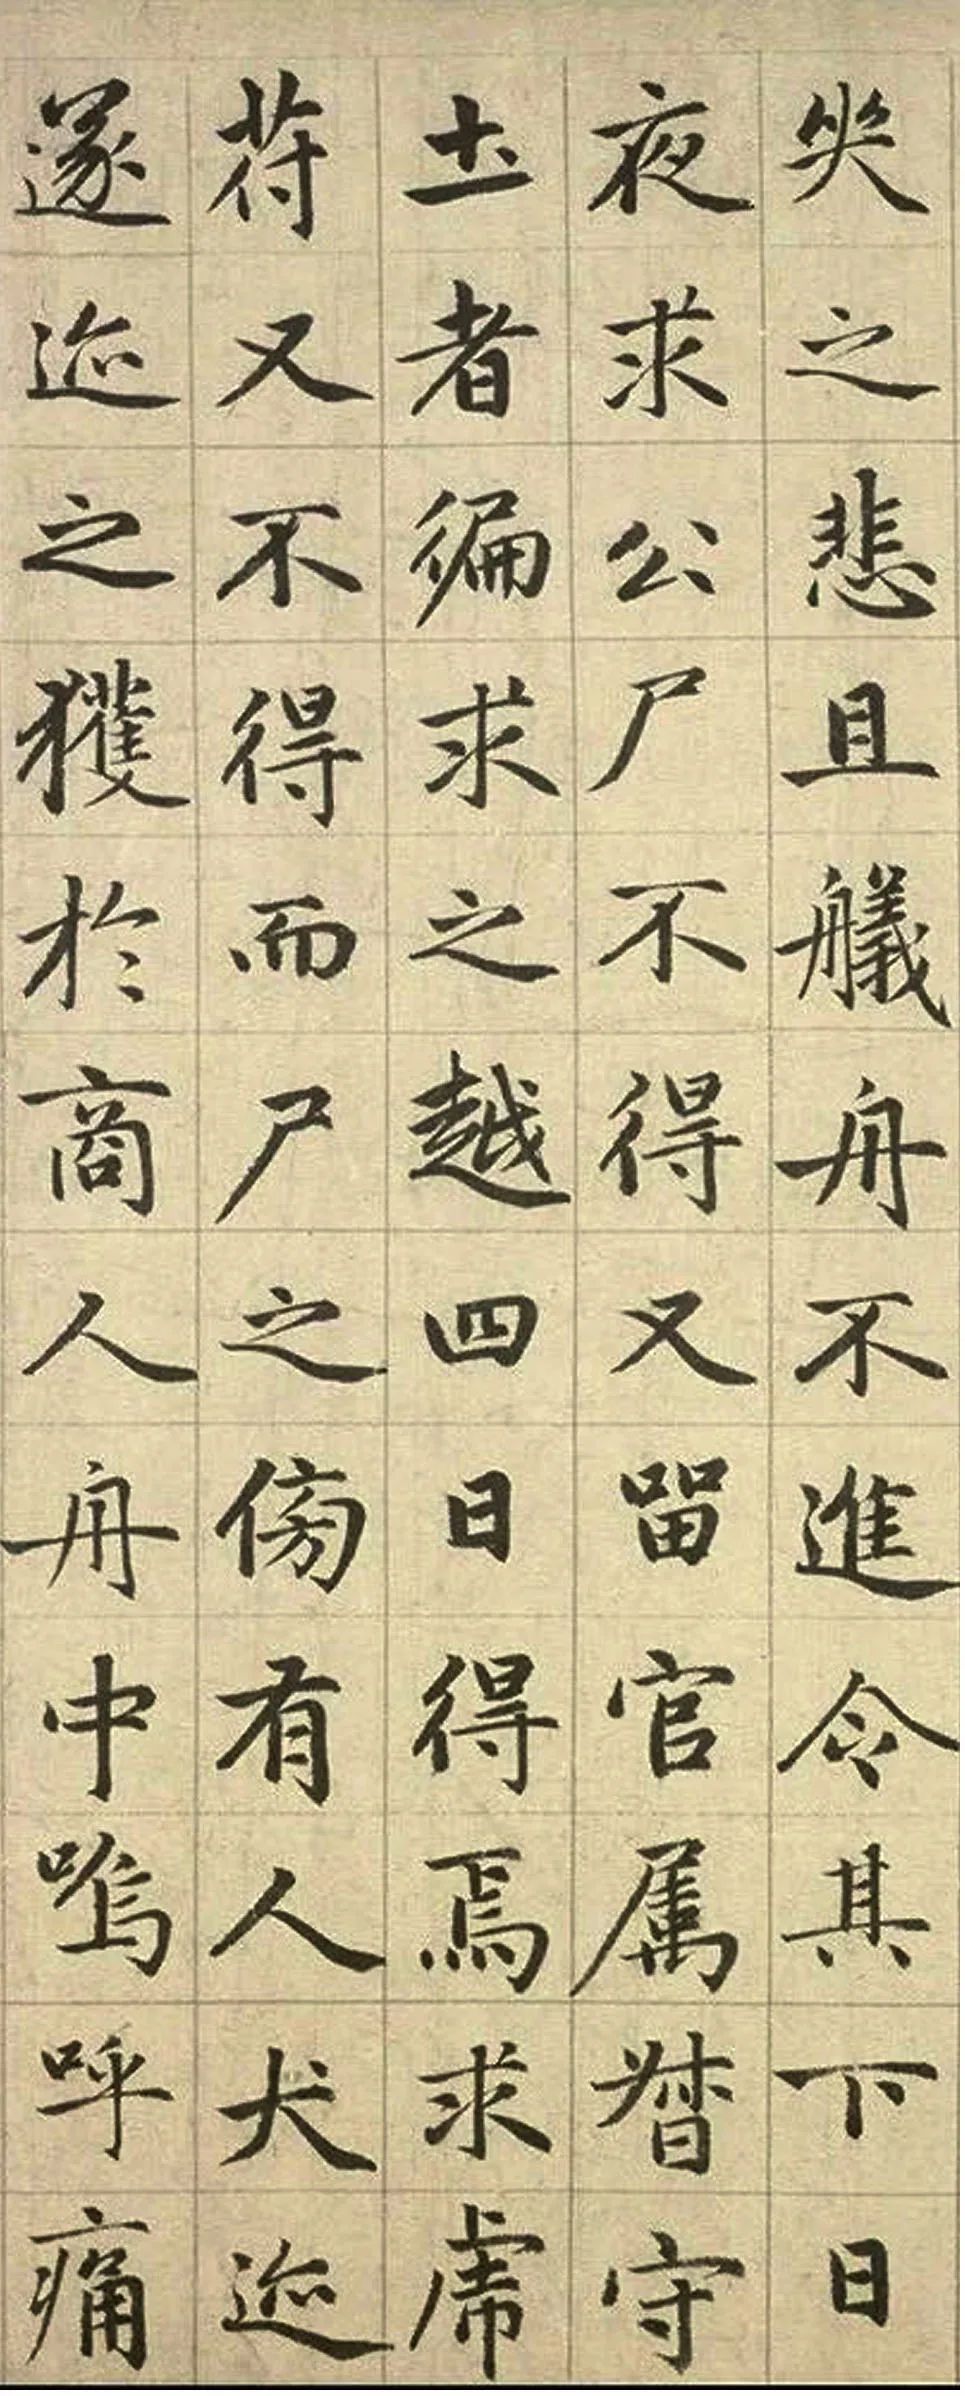 哭之悲且艤舟不進令其下日
夜求公尸不得又留官属督守
土者徧求之越四日得焉求虎
苻又不得而尸之傍有人犬迹
遂迹之獲於商人舟中嗚呼痛